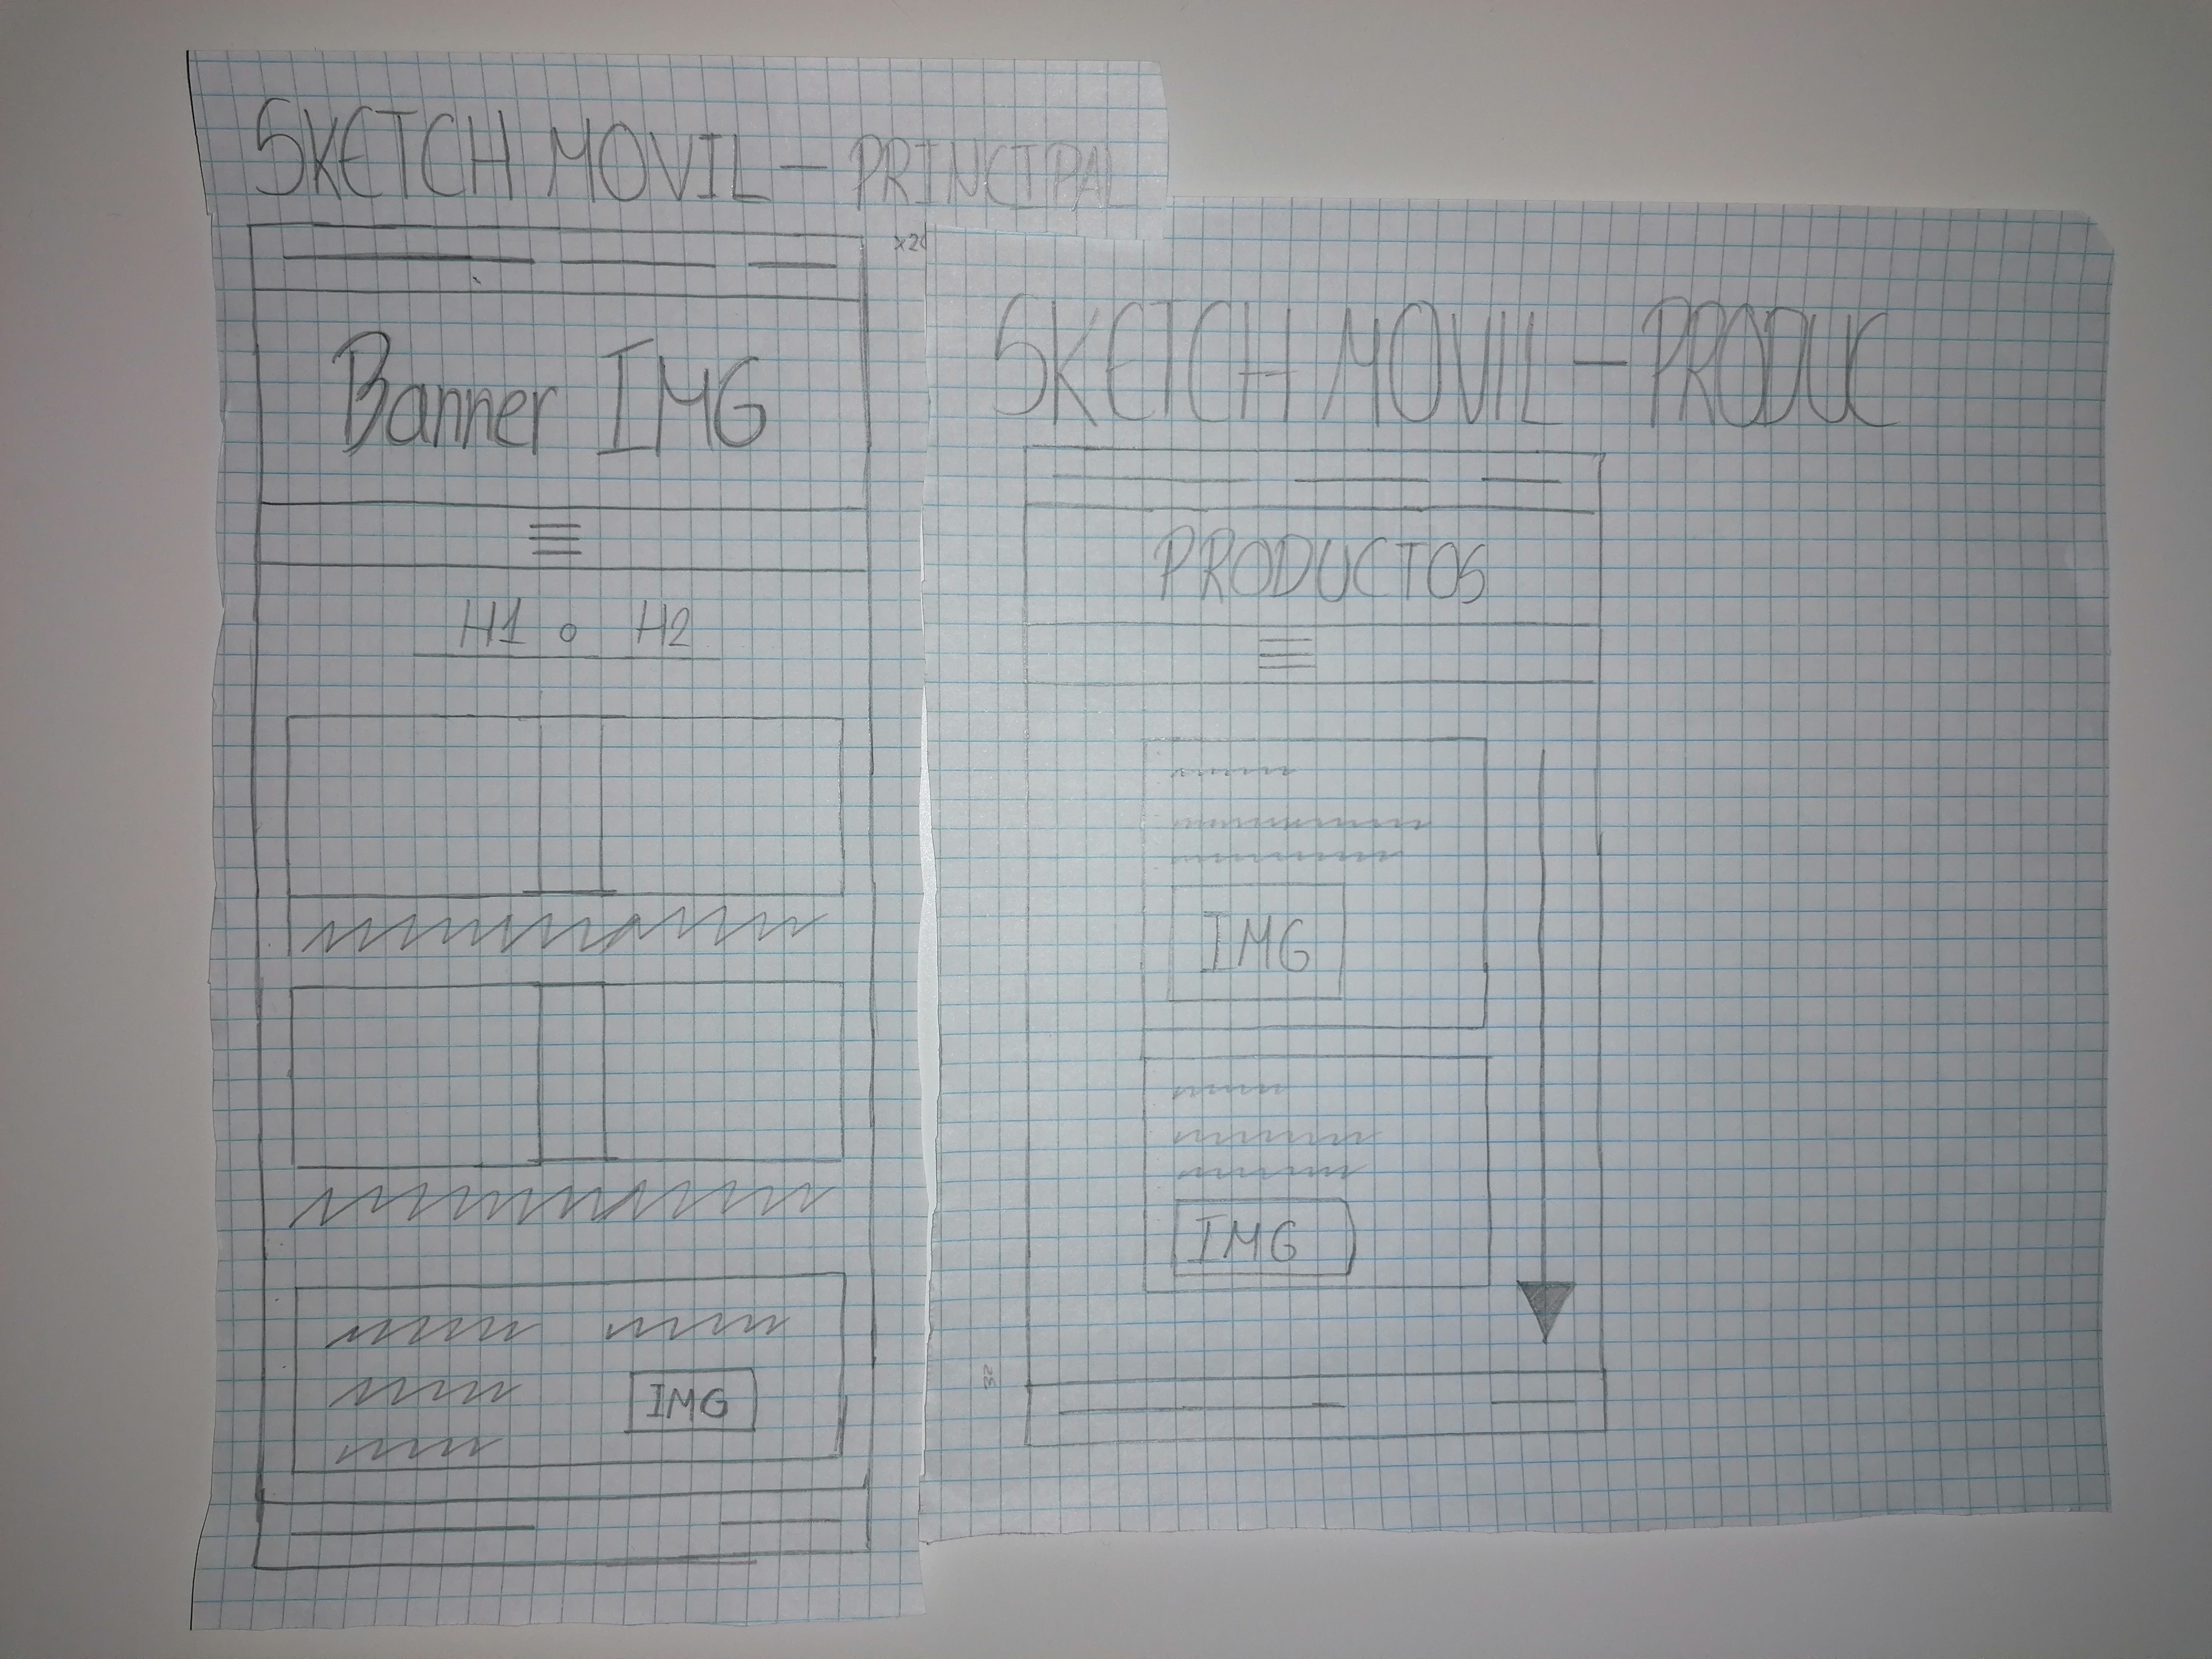 SKETCH MOVIL - PRINCIPAL
Banner IMG
H1 o H2
IMG
SKETCH MOVIL - PRODUC
PRODUCTOS
IMG
IMG